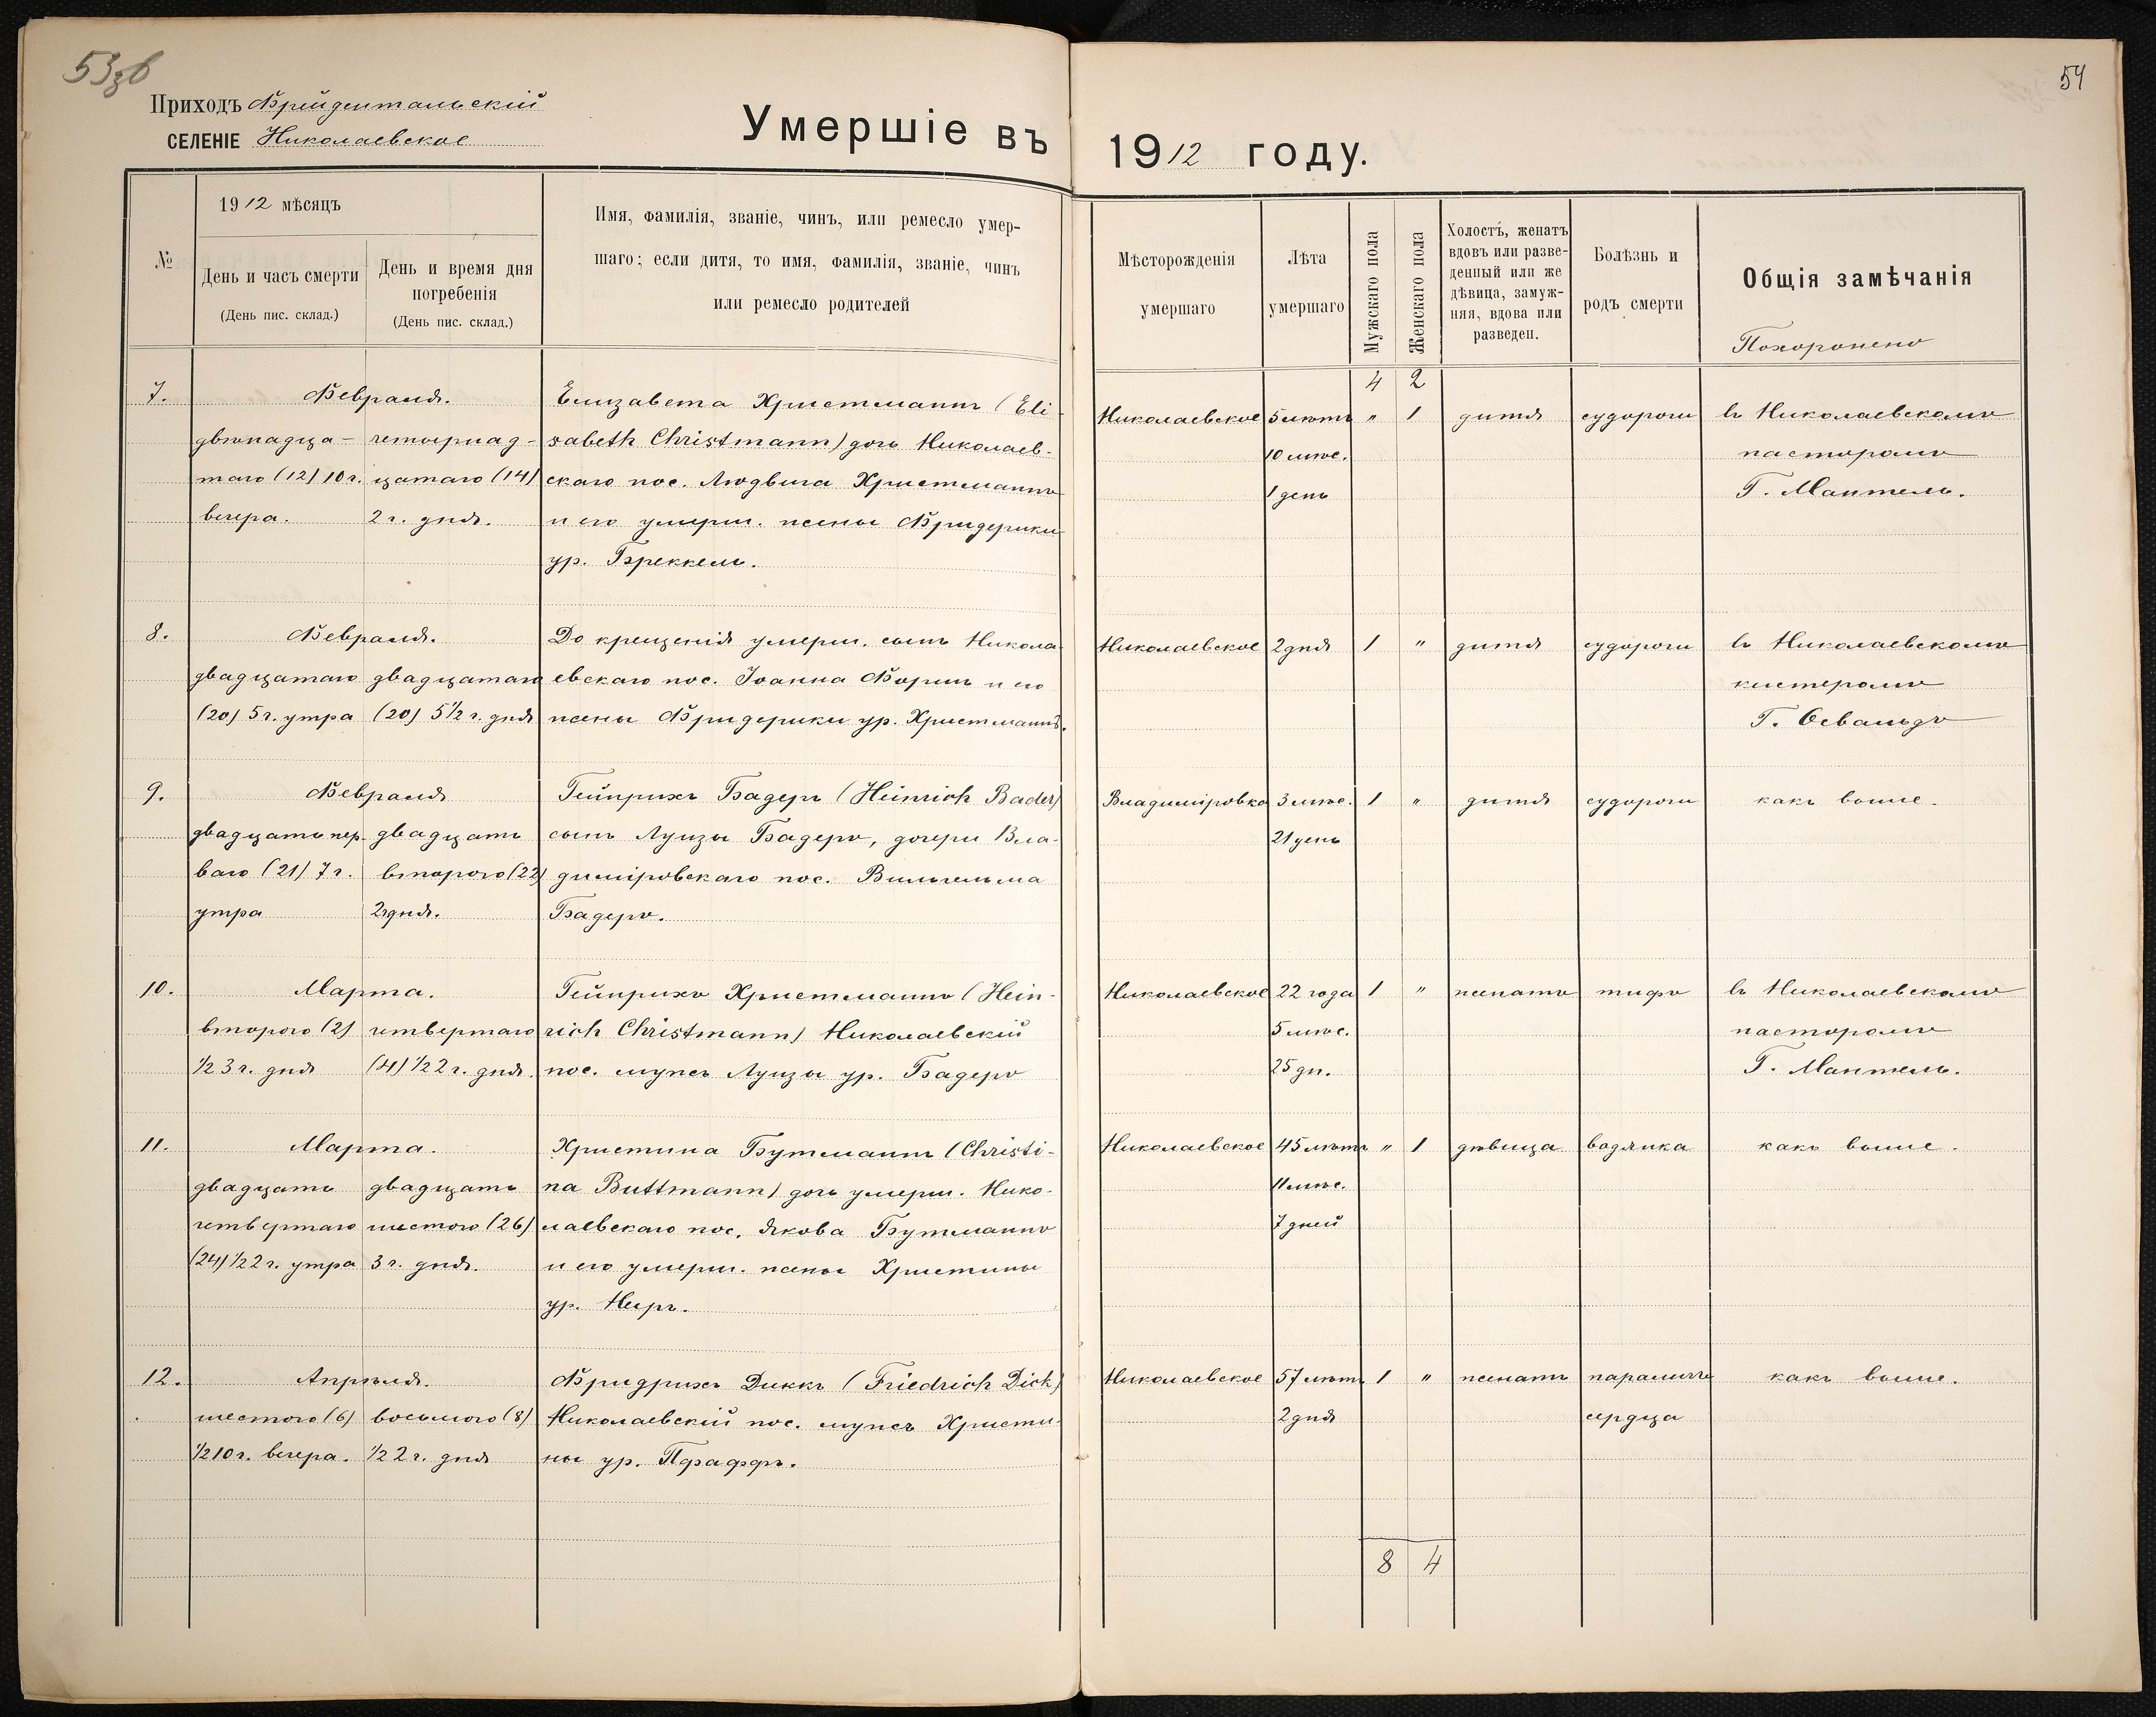 53зб
54
Приходъ Фрейдентальскій
СЕЛЕНІЕ Николаевское
Умершіе въ 1912 году.
№
1912 мѣсяцъ
День и часъ смерти
(День пис. склад.)
День и время дня
погребенія
(День пис. склад.)
Имя, фамилія, званіе, чинъ, или ремесло умер-
шаго; если дитя, то имя, фамилія, званіе, чинъ
или ремесло родителей
Мѣсторожденія
умершаго
Лѣта
умершаго
Мужскаго пола
Женскаго пола
Холостъ, женатъ
вдовъ или разве-
денный или же
дѣвица, замуж-
няя, вдова или
разведен.
Болѣзнь и
родъ смерти
Общія замѣчанія
Похоронено
4 2
7.
Февраля.
двѣнадца-
таго (12) 10 ч.
вечера.
четырнад-
цатаго (14)
2 ч. дня.
Елизавета Христманнъ (Eli-
sabeth Christmann) дочь Николаев-
скаго пос. Людвига Христманнъ
и его умерш. жены Фридерики
ур. Бреккель.
Николаевское
5 лѣтъ
10 мѣс.
1 день
" 1
дитя
судороги
въ Николаевскомъ
пасторомъ
Г. Мантель.
8.
Февраля.
двадцатаго
(20) 5 ч. утра
двадцатаго
(20) 5 1/2 ч. дня
До крещенія умерш. сынъ Никола-
евскаго пос. Іоанна Форшъ и его
жены Фридерики ур. Христманнъ.
Николаевское
2 дня
1 "
дитя
судороги
въ Николаевскомъ
кистеромъ
Г. Освальдъ
9.
Февраля
двадцать пер-
ваго (21) 7 ч.
утра
двадцать
второго (22)
2 ч дня.
Гейнрихъ Бадеръ (Heinrich Bader)
сынъ Луизы Бадеръ, дочери Вла-
диміровскаго пос. Вильгельма
Бадеръ.
Владиміровка
3 мѣс.
21 день
1 "
дитя
судороги
какъ выше.
10.
Марта.
второго (2)
1/2 3 ч. дня
четвертаго
(4) 1/2 2 ч. дня.
Гейнрихъ Христманнъ (Hein-
rich Christmann) Николаевскій
пос. мужъ Луизы ур. Бадеръ
Николаевское
22 года
5 мѣс.
25 дн.
1 "
женатъ
тифъ
въ Николаевскомъ
пасторомъ
Г. Мантель.
11.
Марта.
двадцать
четвертаго
(24) 1/2 2 ч. утра
двадцать
шестого (26)
3 ч. дня.
Христина Бутманнъ (Christi-
na Buttmann) дочь умерш. Нико-
лаевскаго пос. Якова Бутманнъ
и его умерш. жены Христины
ур. Неръ.
Николаевское
45 лѣтъ
11 мѣс.
7 дней
" 1
дѣвица
водянка
какъ выше.
12.
Апрѣля.
шестого (6)
1/2 10 ч. вечера.
восьмого (8)
1/2 2 ч. дня
Фридрихъ Диккъ (Friedrich Dick)
Николаевскій пос. мужъ Христи-
ны ур. Пфаффъ.
Николаевское
57 лѣтъ
2 дня
1 "
женатъ
параличъ
сердца
какъ выше.
8 4